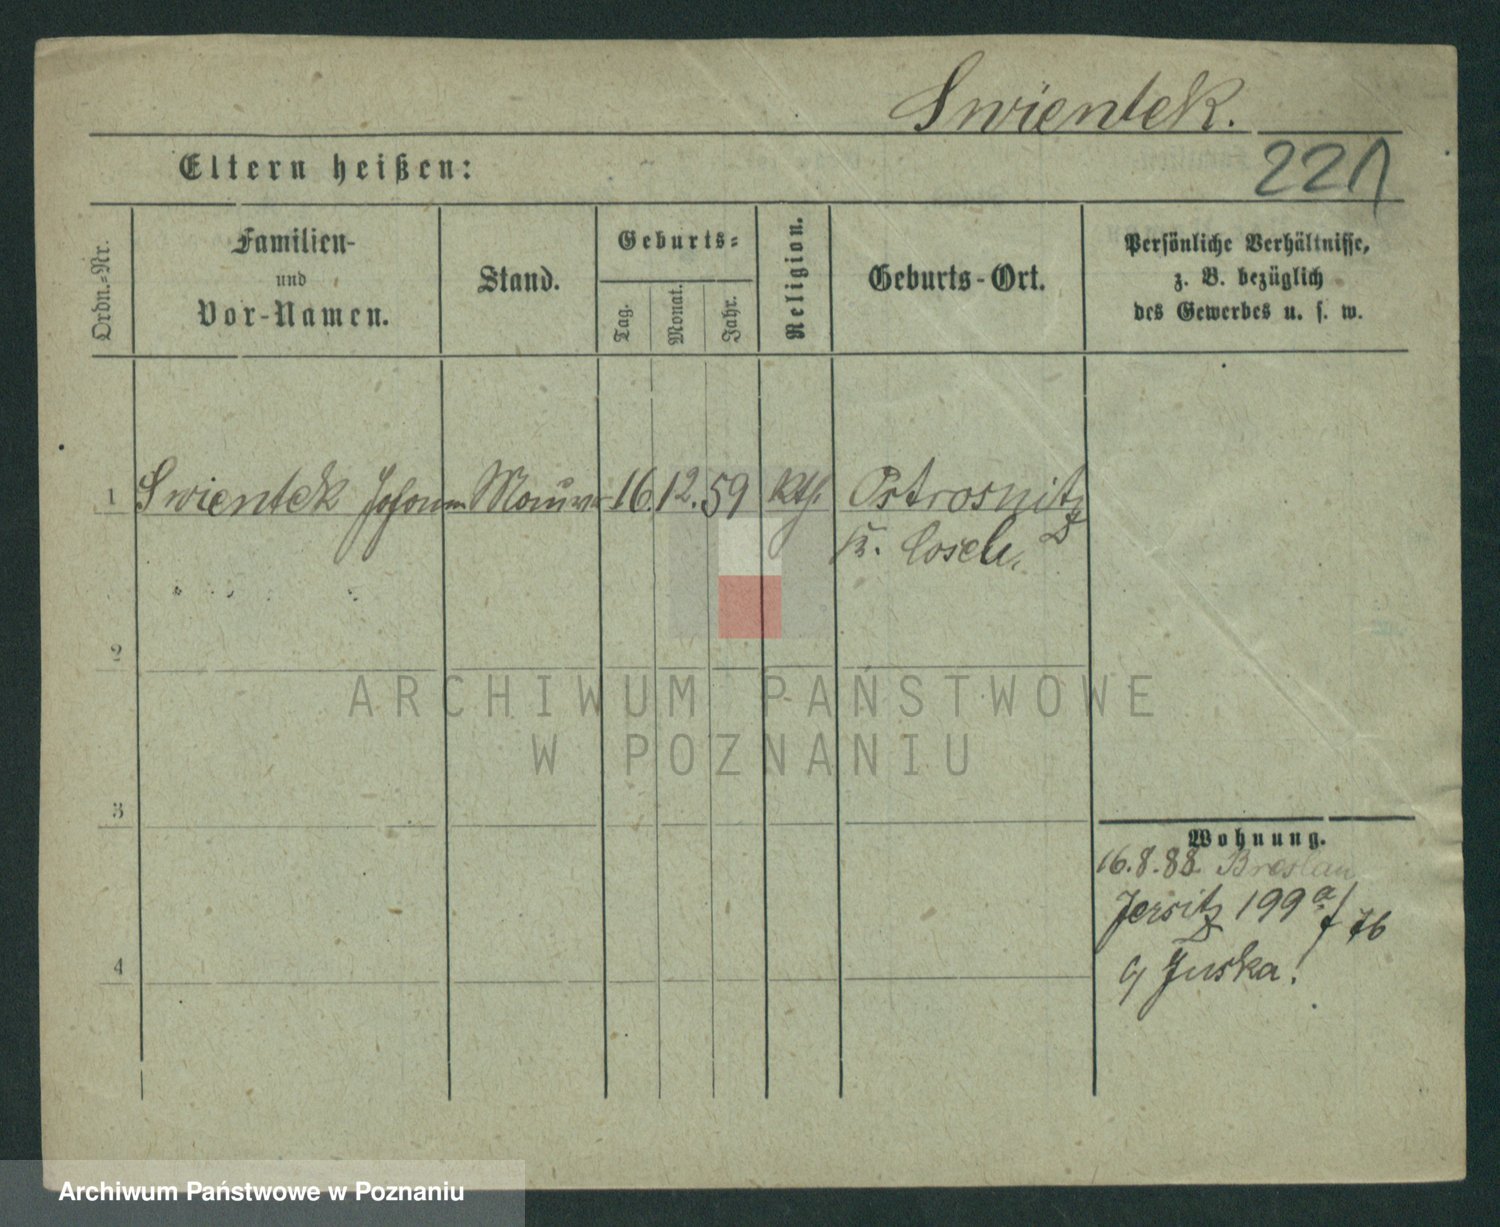 Swientek.
Eltern heißen:
221
Ordn.-Nr.
Familien-
und
Vor-Namen.
Stand.
Geburts-
Tag.
Monat.
Jahr.
Religion.
Geburts-Ort.
Persönliche Verhältnisse,
z. B. bezüglich
des Gewerbes u. s. w.
1 Swientek Johann Maurer 16. 12. 59 kth. Ostrosnitz
K. Cosel.
2
3
4
Wohnung.
16.8.88. Breslau
Jersitz 199a
Juska.
ARCHIWUM PAŃSTWOWE
W POZNANIU
Archiwum Państwowe w Poznaniu